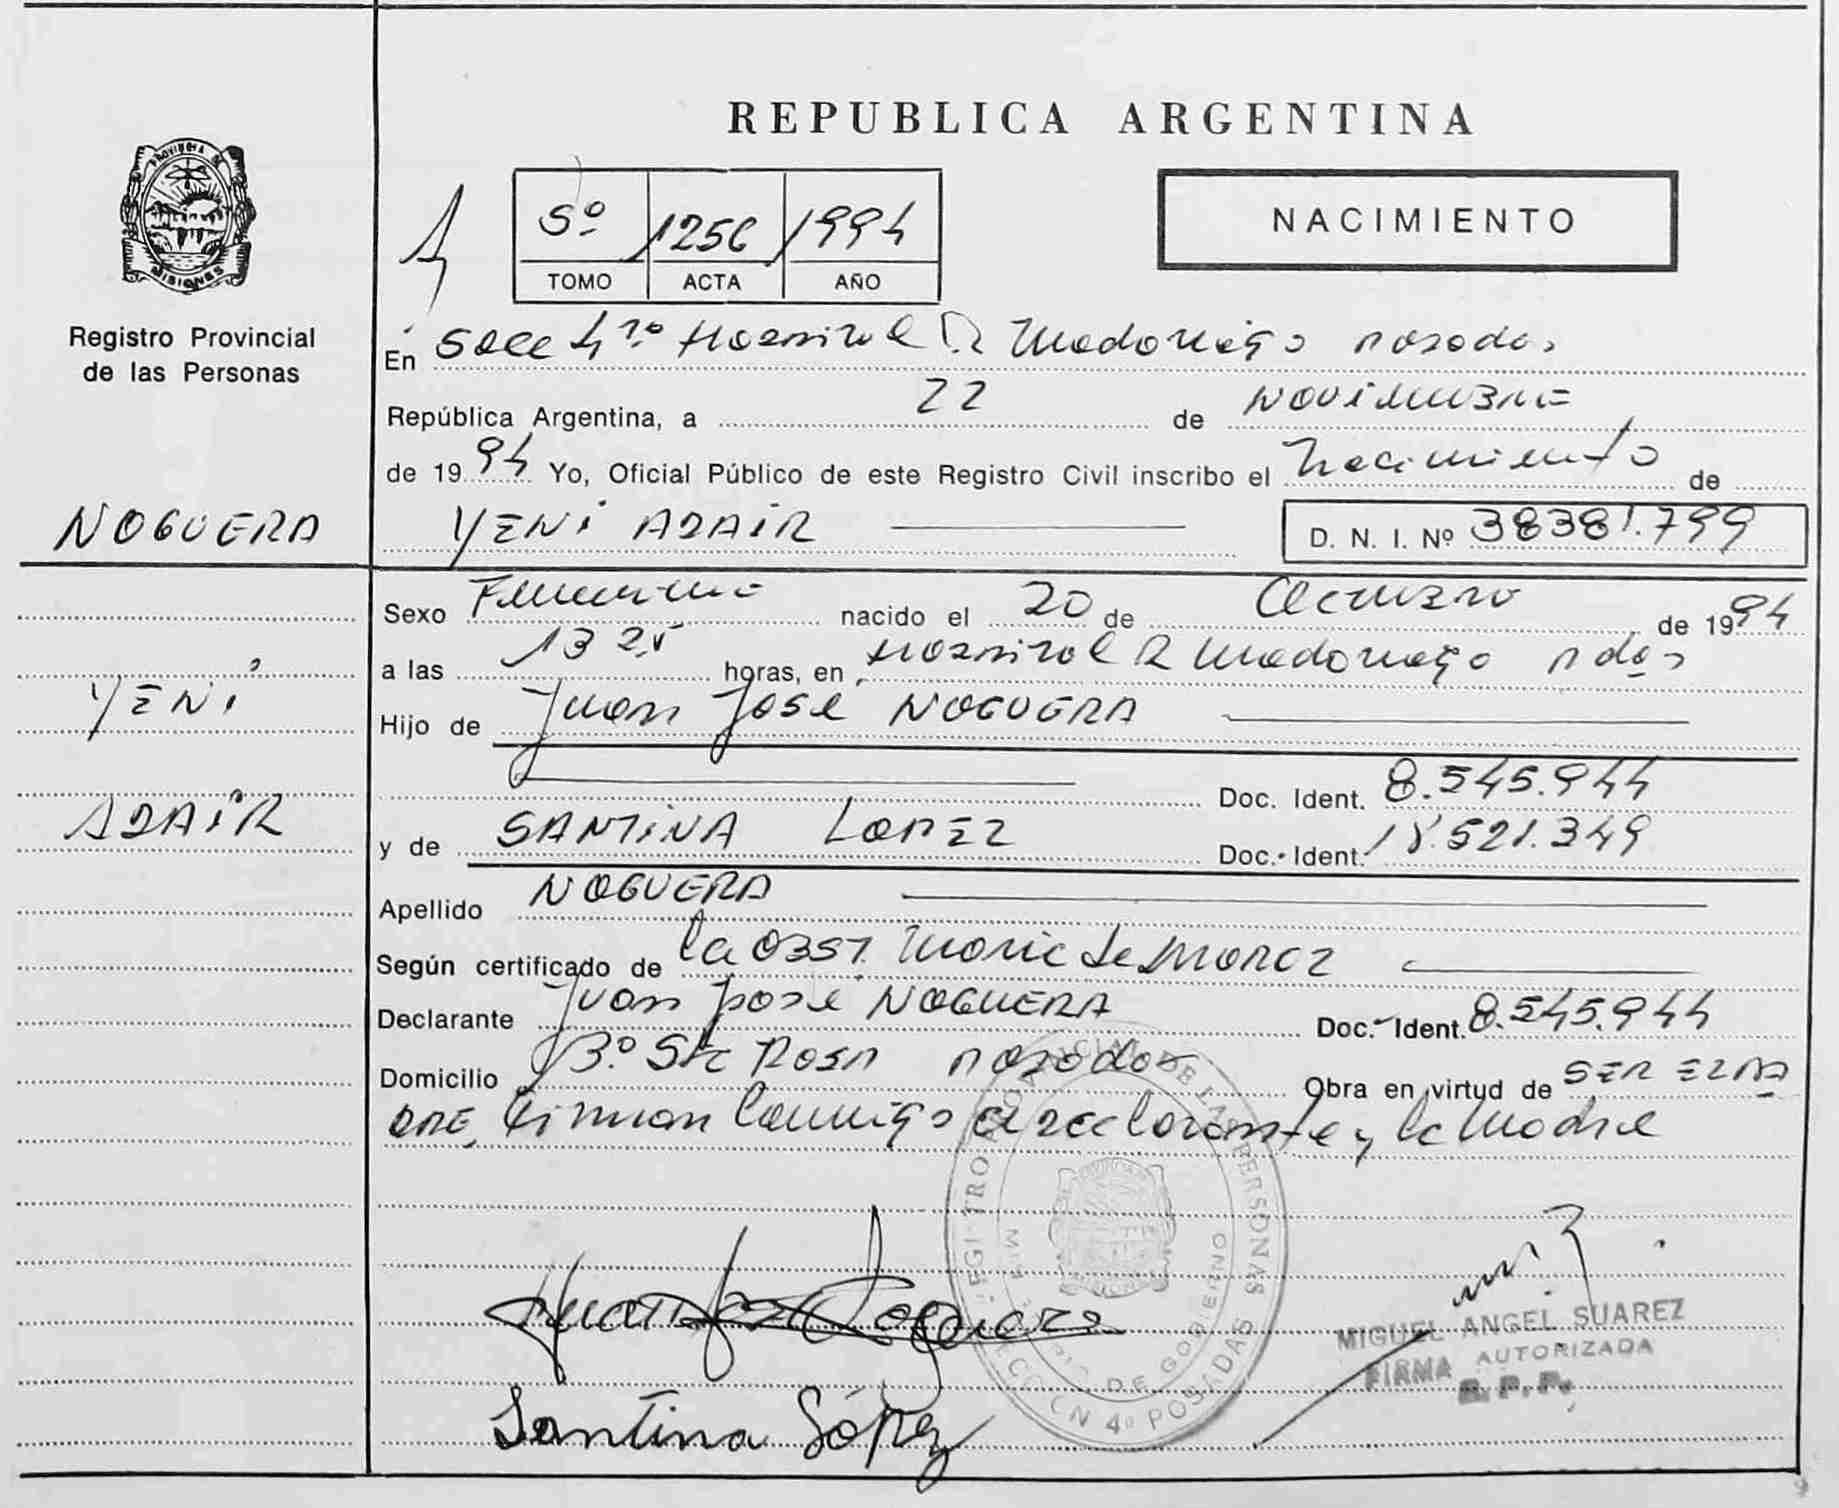 REPUBLICA ARGENTINA
PROVINCIA DE
MISIONES
Registro Provincial
de las Personas
5º 1256 1994
TOMO ACTA AÑO
NACIMIENTO
En Secc 4ta Hospital R Madariaga Posadas
República Argentina, a 22 de Noviembre
de 1994 Yo, Oficial Público de este Registro Civil inscribo el Nacimiento de
NOGUERA
YENi ADAiR D. N. I. Nº 38381.799
Sexo Femenino nacido el 20 de Octubre de 1994
a las 13 25 horas, en Hospital R Madariaga Pdas
YENi
Hijo de Juan José NOGUERA
Doc. Ident. 8.545.944
ADAiR
y de SANTiNA LOPEZ Doc. Ident. 18.521.349
Apellido NOGUERA
Según certificado de la OBST. Maria de
Declarante Juan José NOGUERA Doc. Ident. 8.545.944
Domicilio Bº Sta Rosa Posadas Obra en virtud de SER EL PA
DRE, Firman Conmigo el declarante y la Madre
REGISTRO PROVINCIAL DE LAS PERSONAS
MINISTERIO DE GOBIERNO
SECCION 4º POSADAS
Juan José Noguera
Santina López
MIGUEL ANGEL SUAREZ
FIRMA AUTORIZADA
R. P. P.